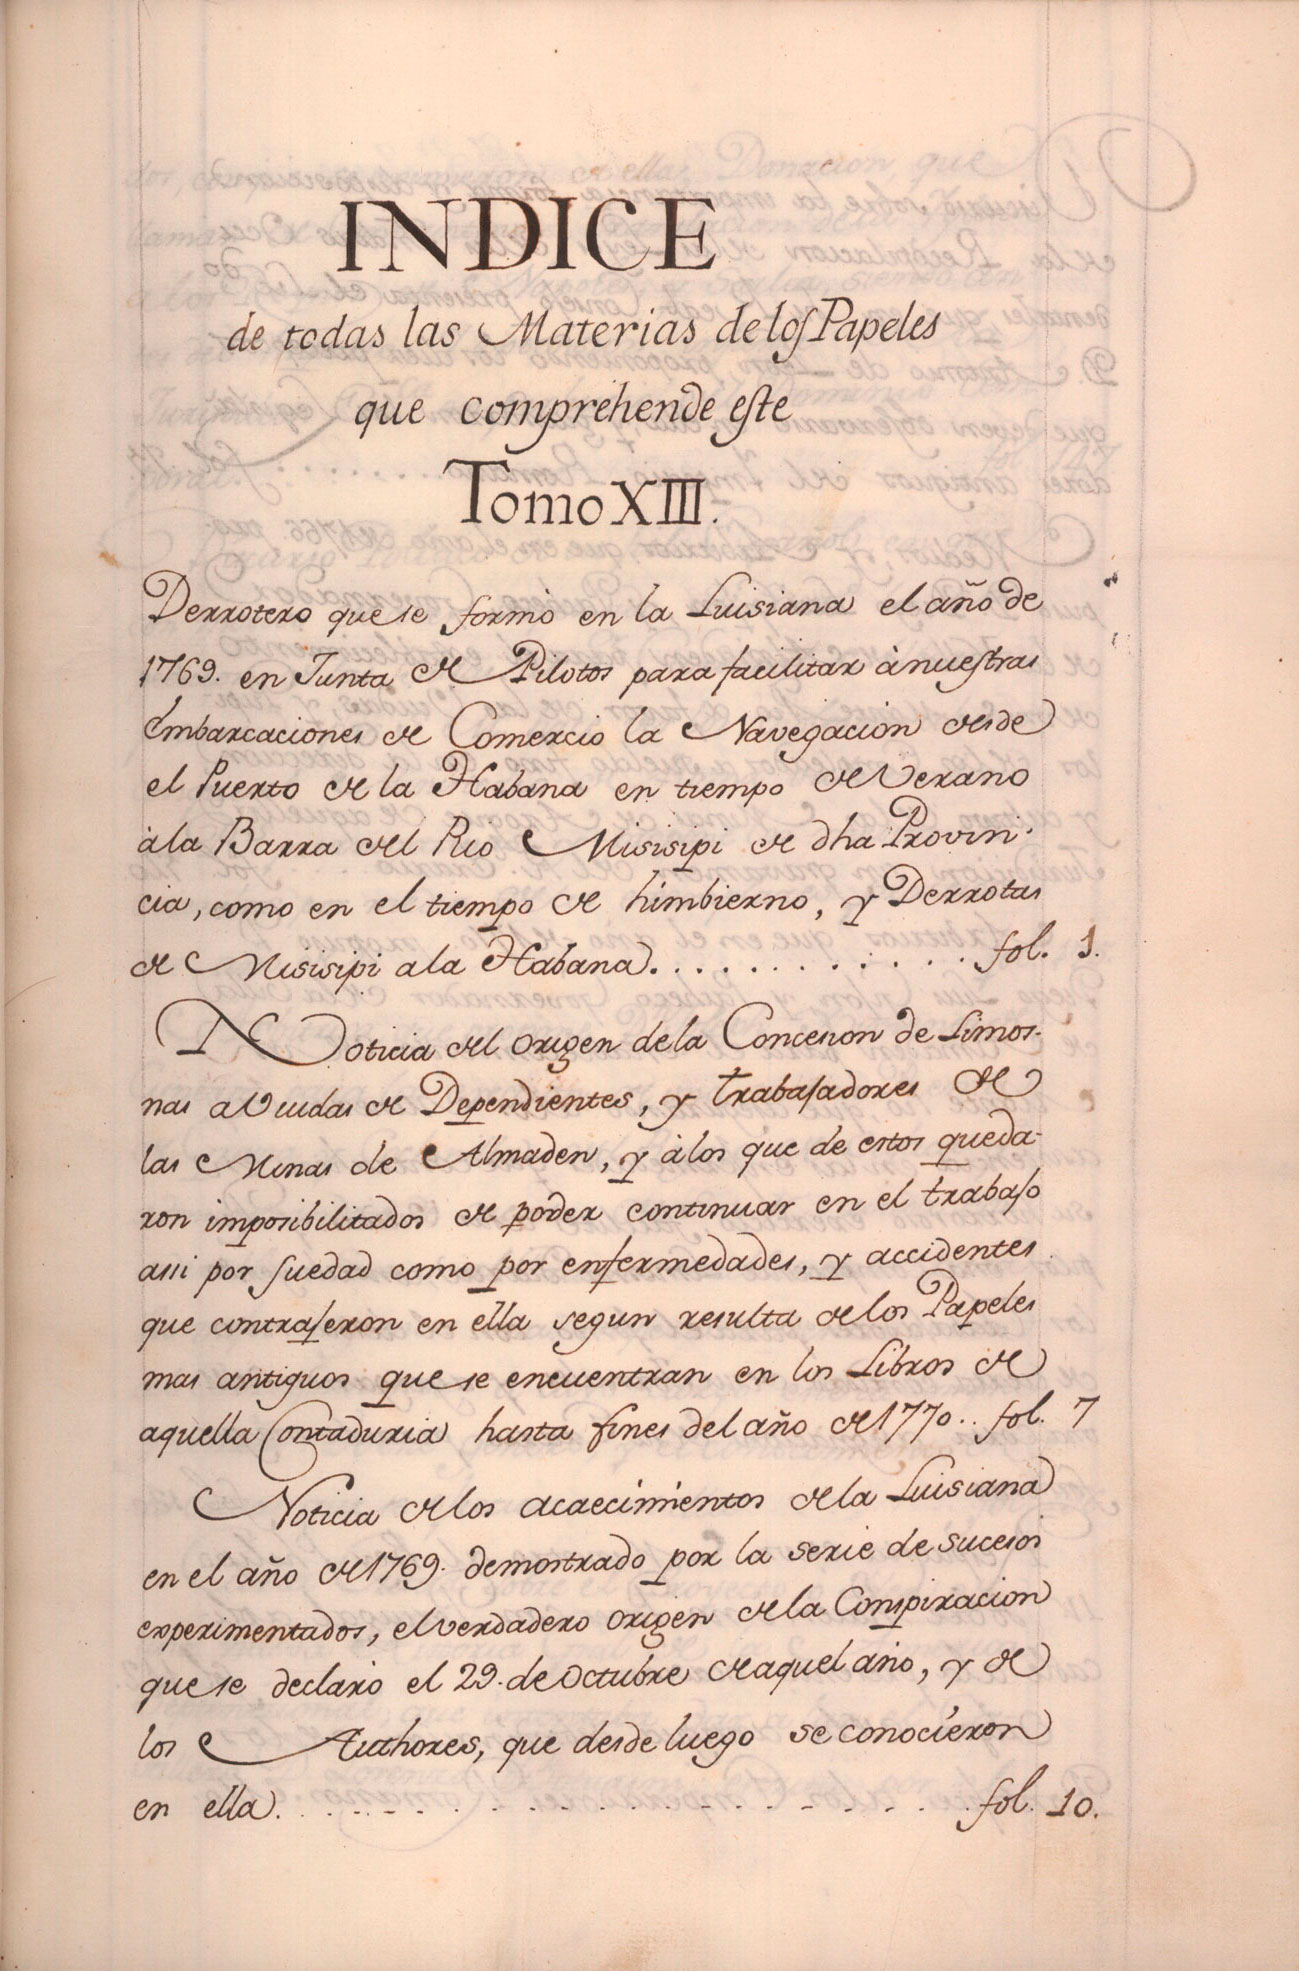 INDICE
de todas las Materias de los Papeles
que comprehende este
Tomo XIII.
Derrotero que se formò en la Luisiana el año de
1769. en Junta de Pilotos para facilitar à nuestras
Embarcaciones de Comercio la Navegacion desde
el Puerto de la Habana en tiempo de Verano
à la Barra del Rio Misisipi de dha Provin-
cia, como en el tiempo de himbierno, y Derrotas
de Misisipi a la Habana. . . . . . . . . . . . . fol. 1.
Noticia del origen de la Concesion de Limos-
nas a Viudas de Dependientes, y trabajadores de
las Minas de Almaden, y à los que de estos queda-
ron imposibilitados de poder continuar en el trabajo
assi por suedad como por enfermedades, y accidentes
que contrajeron en ella segun resulta de los Papeles
mas antiguos que se encuentran en los Libros de
aquella Contaduria hasta fines del año de 1770. . fol. 7
Noticia de los acaecimientos de la Luisiana
en el año de 1769. demostrado por la serie de sucesos
experimentados, el verdadero origen de la Conspiracion
que se declarò el 29. de Octubre de aquel año, y de
los Authores, que desde luego se conocieron
en ella. . . . . . . . . . . . . . . . . . fol. 10.